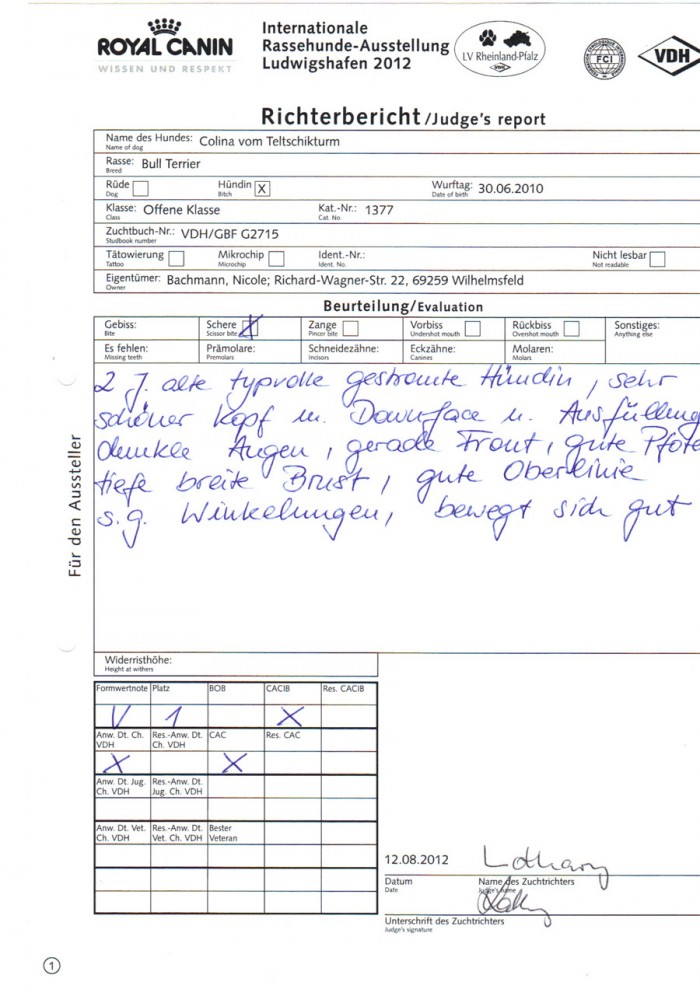 ROYAL CANIN
WISSEN UND RESPEKT
Internationale
Rassehunde-Ausstellung
Ludwigshafen 2012
LV Rheinland-Pfalz
VDH
FCI
VDH
Richterbericht /Judge's report
Name des Hundes: Colina vom Teltschikturm
Name of dog
Rasse: Bull Terrier
Breed
Rüde Hündin X Wurftag: 30.06.2010
Dog Bitch Date of birth
Klasse: Offene Klasse Kat.-Nr.: 1377
Class Cat. No.
Zuchtbuch-Nr.: VDH/GBF G2715
Studbook number
Tätowierung Mikrochip Ident.-Nr.: Nicht lesbar
Tattoo Microchip Ident. No. Not readable
Eigentümer: Bachmann, Nicole; Richard-Wagner-Str. 22, 69259 Wilhelmsfeld
Owner
Beurteilung/Evaluation
Gebiss: Schere X Zange Vorbiss Rückbiss Sonstiges:
Bite Scissor bite Pincer bite Undershot mouth Overshot mouth Anything else
Es fehlen: Prämolare: Schneidezähne: Eckzähne: Molaren:
Missing teeth Premolars Incisors Canines Molars
2 J. alte typvolle gestromte Hündin, sehr
schöner Kopf m. Downface u. Ausfüllung
dunkle Augen, gerade Front, gute Pfote
tiefe breite Brust, gute Oberlinie
s.g. Winkelungen, bewegt sich gut
Für den Aussteller
Widerristhöhe:
Height at withers
Formwertnote Platz BOB CACIB Res. CACIB
V 1 X
Anw. Dt. Ch. Res.-Anw. Dt. CAC Res. CAC
VDH Ch. VDH
X X
Anw. Dt. Jug. Res.-Anw. Dt.
Ch. VDH Jug. Ch. VDH
Anw. Dt. Vet. Res.-Anw. Dt. Bester
Ch. VDH Vet. Ch. VDH Veteran
12.08.2012
Datum Name des Zuchtrichters
Date Judge's name
Unterschrift des Zuchtrichters
Judge's signature
1